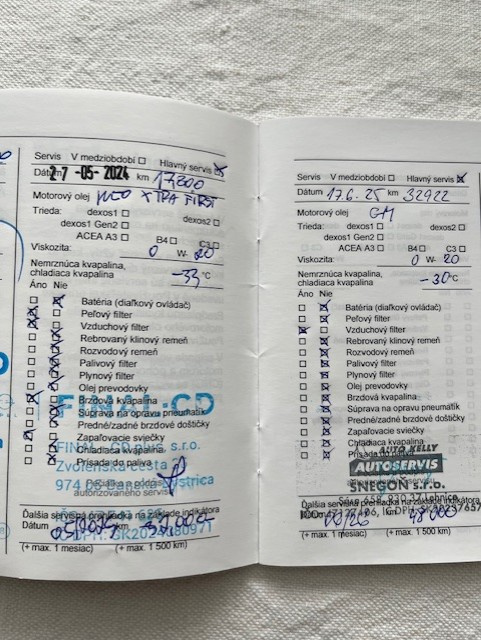 Servis V medziobdobí ☐ Hlavný servis ☒
Dátum 27 -05- 2024 km 17200
Motorový olej XTRA FIRST
Trieda: dexos1 ☐ dexos2 ☐
dexos1 Gen2 ☐
ACEA A3 ☐ B4 ☐ C3 ☐
Viskozita: 0 W- 20
Nemrznúca kvapalina,
chladiaca kvapalina -33 °C
Áno Nie
Batéria (diaľkový ovládač)
Peľový filter
Vzduchový filter
Rebrovaný klinový remeň
Rozvodový remeň
Palivový filter
Plynový filter
Olej prevodovky
Brzdová kvapalina
Súprava na opravu pneumatík
Predné/zadné brzdové doštičky
Zapaľovacie sviečky
Chladiaca kvapalina
Prísada do paliva
FINAL-CD
FINAL - CD plus, s.r.o.
Zvolenská cesta
974 05 Banská Bystrica
autorizovaného servisu
Ďalšia servisná prehliadka na základe indikátora
Dátum km
(+ max. 1 mesiac) (+ max. 1 500 km)
Servis V medziobdobí ☐ Hlavný servis ☒
Dátum 17.6.25 km 32922
Motorový olej GM
Trieda: dexos1 ☐ dexos2 ☐
dexos1 Gen2 ☐
ACEA A3 ☐ B4 ☐ C3 ☐
Viskozita: 0 W- 20
Nemrznúca kvapalina,
chladiaca kvapalina -30 °C
Áno Nie
Batéria (diaľkový ovládač)
Peľový filter
Vzduchový filter
Rebrovaný klinový remeň
Rozvodový remeň
Palivový filter
Plynový filter
Olej prevodovky
Brzdová kvapalina
Súprava na opravu pneumatík
Predné/zadné brzdové doštičky
Zapaľovacie sviečky
Chladiaca kvapalina
Prísada do paliva
AUTO KELLY
AUTOSERVIS
SNEGON s.r.o.
Ďalšia servisná prehliadka na základe indikátora
km 48 000
(+ max. 1 mesiac) (+ max. 1 500 km)